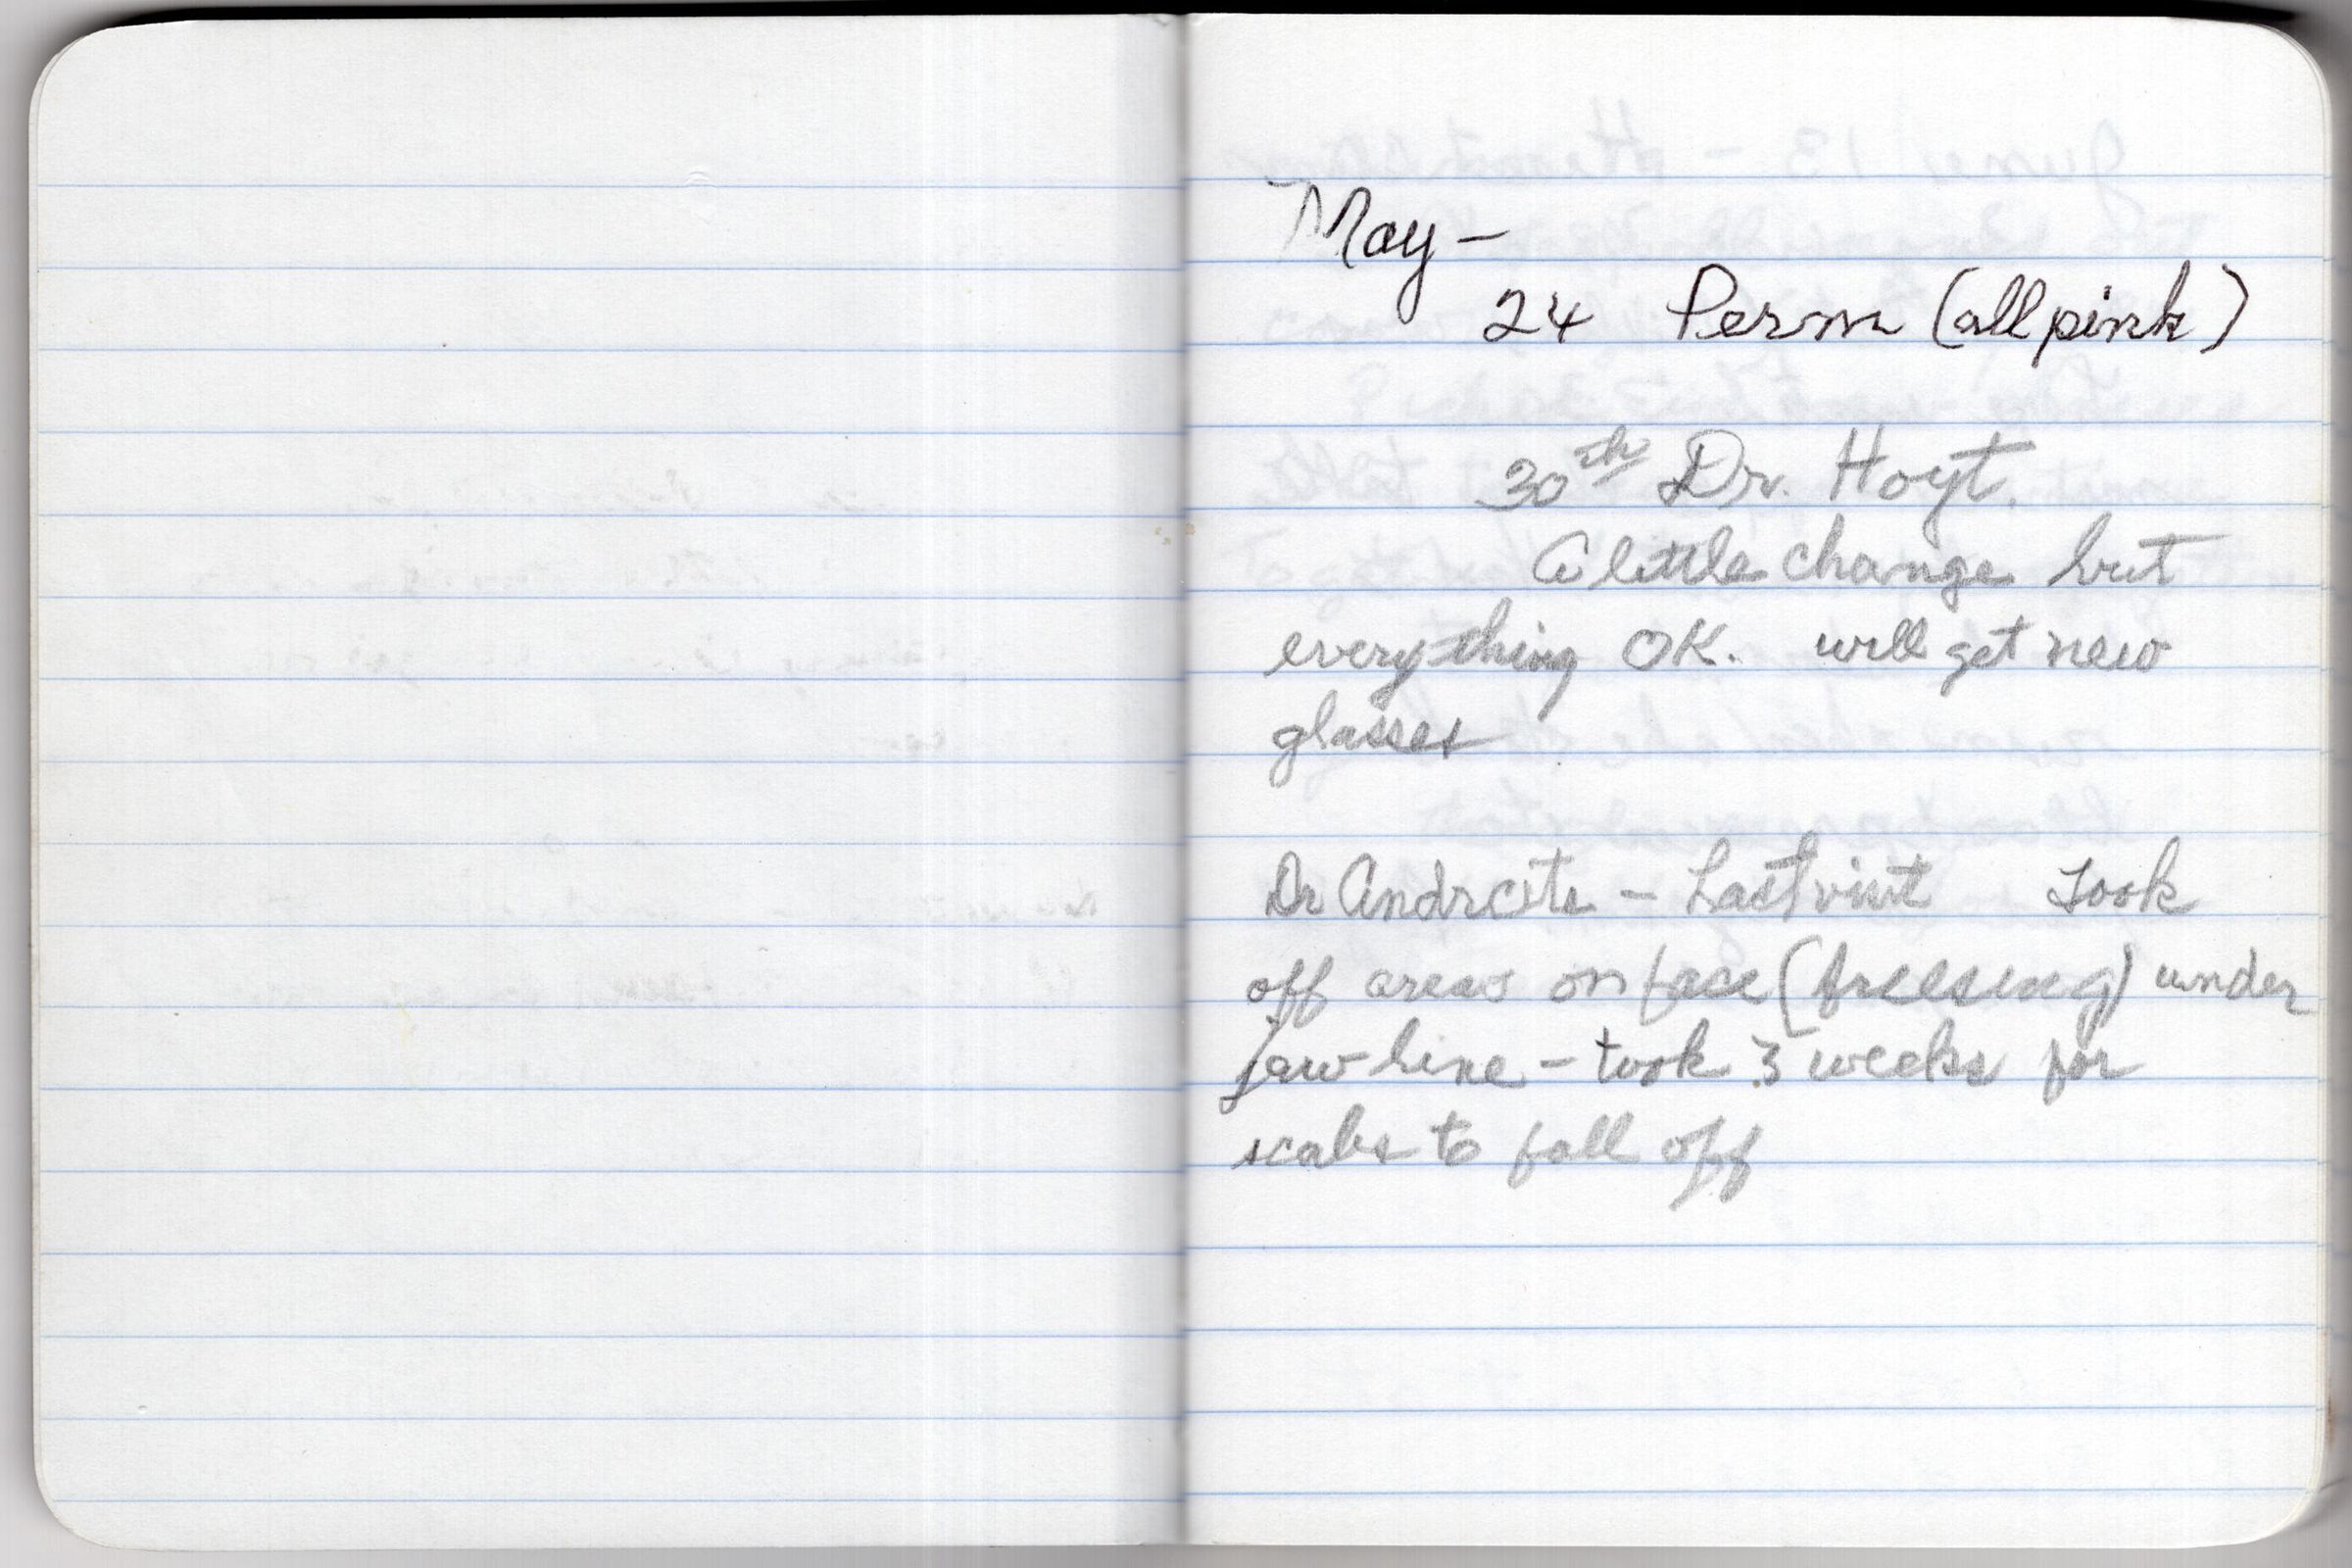 May –
24 Perm (all pink)
30th Dr. Hoyt.
A little change but
everything OK. will get new
glasses
Dr – Last visit Took
off areas on face (freesing) under
jaw line – took 3 weeks for
scabs to fall off